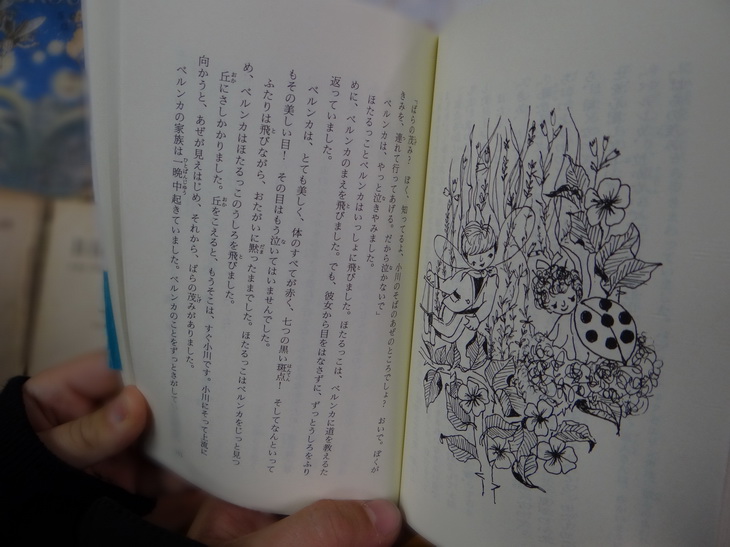 「ばらの茂み? ぼく、知ってるよ、小川のそばのあぜのところでしょ? おいで。ぼくが
きみを、連れて行ってあげる。だから泣かないで」
ベルンカは、やっと泣きやみました。
ほたるっことベルンカはいっしょに飛びました。ほたるっこは、ベルンカに道を教えるた
めに、ベルンカのまえを飛びました。でも、彼女から目をはなさずに、ずっとうしろをふり
返っていました。
ベルンカは、とても美しく、体のすべてが赤く、七つの黒い斑点! そしてなんといって
もその美しい目! その目はもう泣いてはいませんでした。
ふたりは飛びながら、おたがいに黙ったままでした。ほたるっこはベルンカをじっと見つ
め、ベルンカはほたるっこのうしろを飛びました。
丘にさしかかりました。丘をこえると、もうそこは、すぐ小川です。小川にそって上流に
向かうと、あぜが見えはじめ、それから、ばらの茂みがありました。
ベルンカの家族は一晩中起きていました。ベルンカのことをずっとさがして